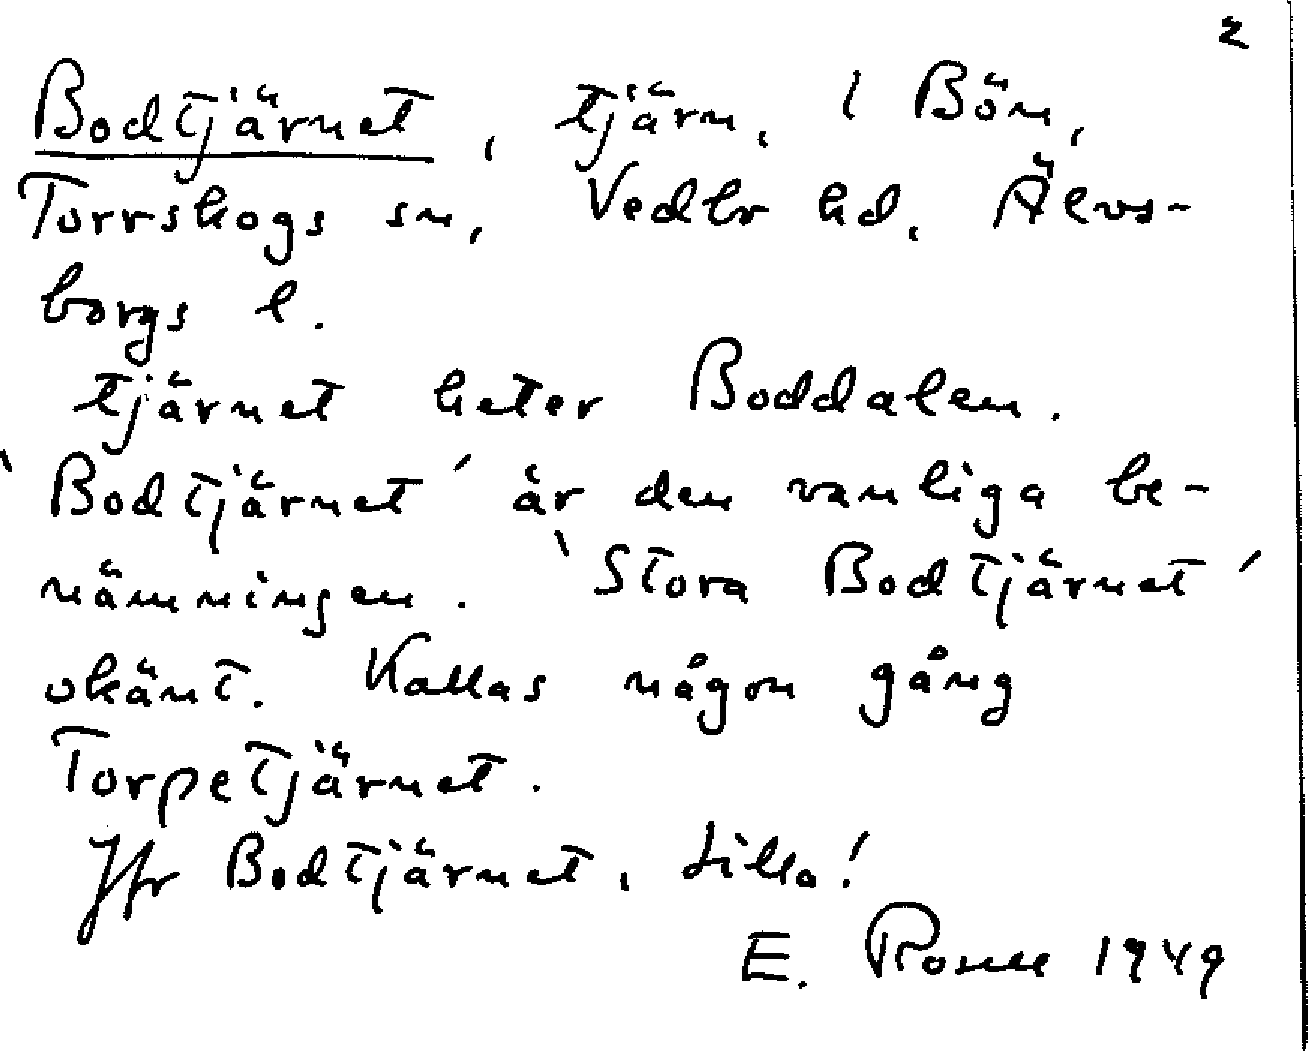 2
Bodtjärnet, tjärn, i Bön,
Torrskogs sn, Vedbo hd, Älvs-
borgs l.
tjärnet heter Boddalen.
`Bodtjärnet´ är den vanliga be-
nämningen. `Stora Bodtjärnet´
okänt. Kallas någon gång
Torpetjärnet.
Jfr Bodtjärnet, Lilla!
E. 1949